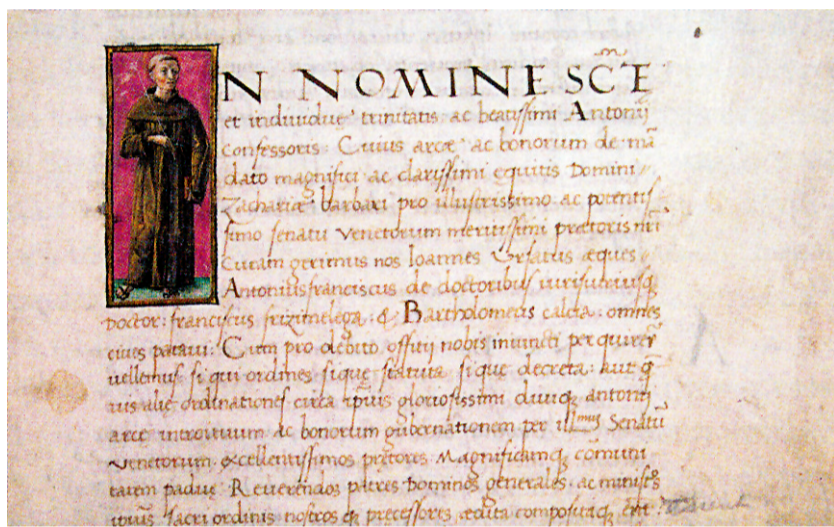 IN NOMINE SCTE
et indiuidue trinitatis ac beatissimi Antonij
confessoris Cuius arcæ ac bonorum de mā
dato magnifici ac clarissimi equitis Domini
Zachariæ barbari pro illustrissimo ac potentis
simo senatu Venetorum meritissimi prætoris nr̄i
Curam gerimus nos Ioannes Vrsatus æques
Antoniusfranciscus de doctoribus iurisutriusq
Doctor: franciscus frizimelega & Bartholomeus calcia: omnes
ciues pataui: Cum pro debito offitij nobis iniuncti perquirer
uellemus si qui ordines siquę statuta siquę decreta: aut q
uis alię ordinationes circa ip̄ius gloriosissimi diuiq antonij
arcę introituum ac bonorum gubernationem per illmus Senatū
Venetorum excellentissimos pretores Magnificamq cōmuni
tatem paduę Reuerendos patres Dominos generales ac minist̄s
ip̄ius sacri ordinis nostros q precessores ædita compositaq